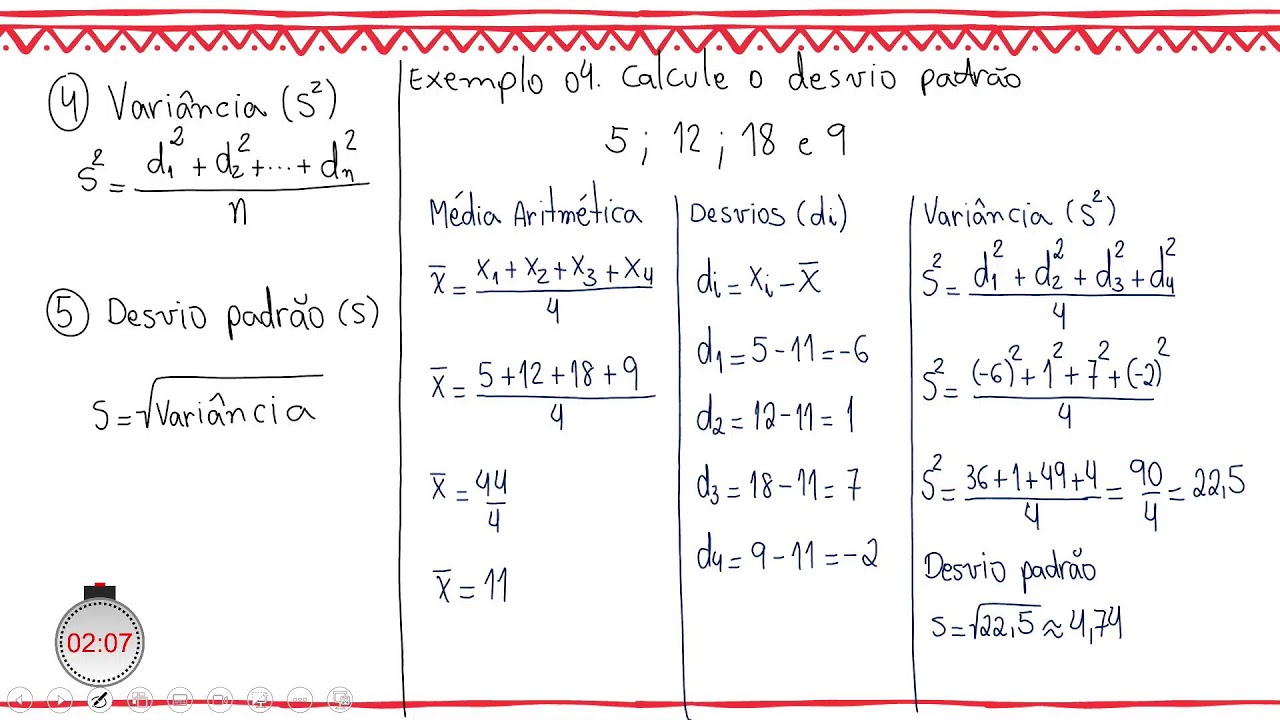 ④ Variância (S²)
S² = (d₁² + d₂² + ... + dₙ²) / n
⑤ Desvio padrão (S)
S = √Variância
02:07
Exemplo 04. Calcule o desvio padrão
5 ; 12 ; 18 e 9
Média Aritmética
x̄ = (x₁ + x₂ + x₃ + x₄) / 4
x̄ = (5 + 12 + 18 + 9) / 4
x̄ = 44 / 4
x̄ = 11
Desvios (di)
di = xi − x̄
d₁ = 5 − 11 = −6
d₂ = 12 − 11 = 1
d₃ = 18 − 11 = 7
d₄ = 9 − 11 = −2
Variância (S²)
S² = (d₁² + d₂² + d₃² + d₄²) / 4
S² = ((-6)² + 1² + 7² + (-2)²) / 4
S² = (36 + 1 + 49 + 4) / 4 = 90 / 4 = 22,5
Desvio padrão
S = √22,5 ≈ 4,74